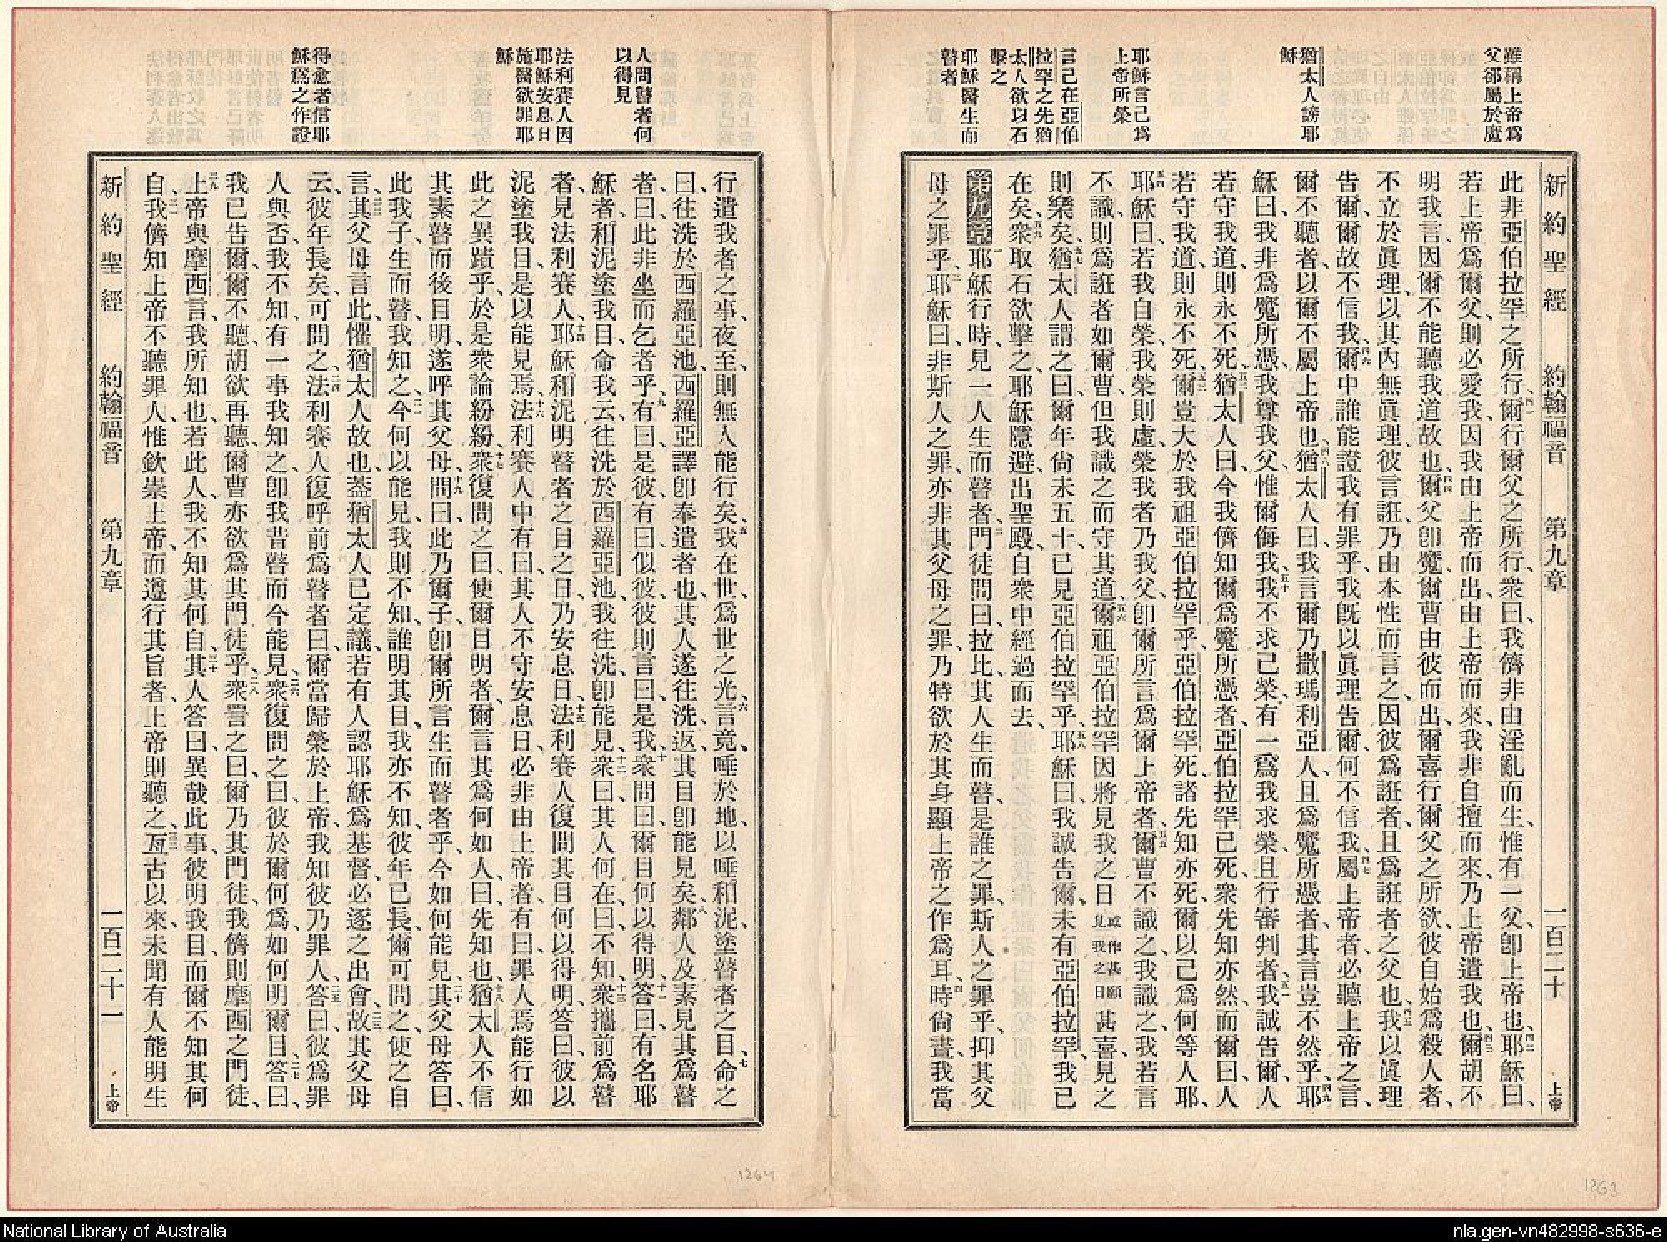 雖稱上帝爲
父卻屬於魔
猶太人謗耶
穌
耶穌言己爲
上帝所榮
言己在亞伯
拉罕之先猶
太人欲以石
擊之
耶穌醫生而
瞽者
新約聖經 約翰福音 第九章 一百二十 上帝
此非亞伯拉罕之所行、爾行爾父之所行、衆曰、我儕非由淫亂而生、惟有一父、卽上帝也、耶穌曰、
若上帝爲爾父、則必愛我、因我由上帝而出、由上帝而來、我非自擅而來、乃上帝遣我也、爾胡不
明我言、因爾不能聽我道故也、爾父卽魔、爾曹由彼而出、爾喜行爾父之所欲、彼自始爲殺人者、
不立於眞理、以其內無眞理、彼言誑、乃由本性而言之、因彼爲誑者、且爲誑者之父也、我以眞理
告爾、爾故不信我、爾中誰能證我有罪乎、我旣以眞理告爾、何不信我、屬上帝者、必聽上帝之言、
爾不聽者、以爾不屬上帝也、猶太人曰、我言爾乃撒瑪利亞人、且爲魔所憑者、其言豈不然乎、耶
穌曰、我非爲魔所憑、我尊我父、惟爾侮我、我不求己榮、有一爲我求榮、且行審判者、我誠告爾、人
若守我道、則永不死、猶太人曰、今我儕知爾爲魔所憑者、亞伯拉罕已死、衆先知亦然、而爾曰、人
若守我道、則永不死、爾豈大於我祖亞伯拉罕乎、亞伯拉罕死、諸先知亦死、爾以己爲何等人、耶
耶穌曰、若我自榮、我榮則虛、榮我者乃我父、卽爾所言爲爾上帝者、爾曹不識之、我識之、我若言
不識、則爲誑者如爾曹、但我識之而守其道、爾祖亞伯拉罕、因將見我之日甚喜、見之
則樂矣、猶太人謂之曰、爾年尙未五十、已見亞伯拉罕乎、耶穌曰、我誠告爾、未有亞伯拉罕、我已
在矣、衆取石欲擊之、耶穌隱避、出聖殿、自衆中經過而去、
第九章 耶穌行時、見一人生而瞽者、門徒問曰、拉比、其人生而瞽、是誰之罪、斯人之罪乎、抑其父
母之罪乎、耶穌曰、非斯人之罪、亦非其父母之罪、乃特欲於其身顯上帝之作爲耳、時尙晝、我當
人問瞽者何
以得見
法利賽人因
耶穌安息日
施醫欲罪耶
穌
得愈者信耶
穌爲之作證
行遣我者之事、夜至、則無人能行矣、我在世、爲世之光、言竟、唾於地、以唾和泥、塗瞽者之目、命之
曰、往洗於西羅亞池、西羅亞譯卽奉遣者也、其人遂往洗、返、其目卽能見矣、鄰人及素見其爲瞽
者曰、此非坐而乞者乎、有曰、是彼、有曰、似彼、彼則言曰、是我、衆問曰、爾目何以得明、答曰、有名耶
穌者、和泥塗我目、命我云、往洗於西羅亞池、我往洗、卽能見、衆曰、其人何在、曰、不知、衆攜前爲瞽
者、見法利賽人、耶穌和泥明瞽者之目之日、乃安息日、法利賽人復問其目何以得明、答曰、彼以
泥塗我目、是以能見焉、法利賽人中有曰、其人不守安息日、必非由上帝者、有曰、罪人焉能行如
此之異蹟乎、於是衆論紛紛、衆復問之曰、使爾目明者、爾言其爲何如人、曰、先知也、猶太人不信
其素瞽而後目明、遂呼其父母、問曰、此乃爾子、卽爾所言生而瞽者乎、今如何能見、其父母答曰、
此我子、生而瞽、我知之、今何以能見、我則不知、誰明其目、我亦不知、彼年已長、爾可問之、使之自
言、其父母言此、懼猶太人故也、蓋猶太人已定議、若有人認耶穌爲基督、必逐之出會、故其父母
云、彼年長矣、可問之、法利賽人復呼前爲瞽者曰、爾當歸榮於上帝、我知彼乃罪人、答曰、彼爲罪
人與否、我不知、有一事我知之、卽我昔瞽而今能見、衆復問之曰、彼於爾何爲、如何明爾目、答曰、
我已告爾、爾不聽、胡欲再聽、爾曹亦欲爲其門徒乎、衆詈之曰、爾乃其門徒、我儕則摩西之門徒、
上帝與摩西言、我所知也、若此人、我不知其何自、其人答曰、異哉此事、彼明我目、而爾不知其何
自、我儕知上帝不聽罪人、惟欽崇上帝而遵行其旨者、上帝則聽之、亙古以來、未聞有人能明生
新約聖經 約翰福音 第九章 一百二十一 上帝
1264
1263
National Library of Australia
nla.gen-vn482998-s636-e